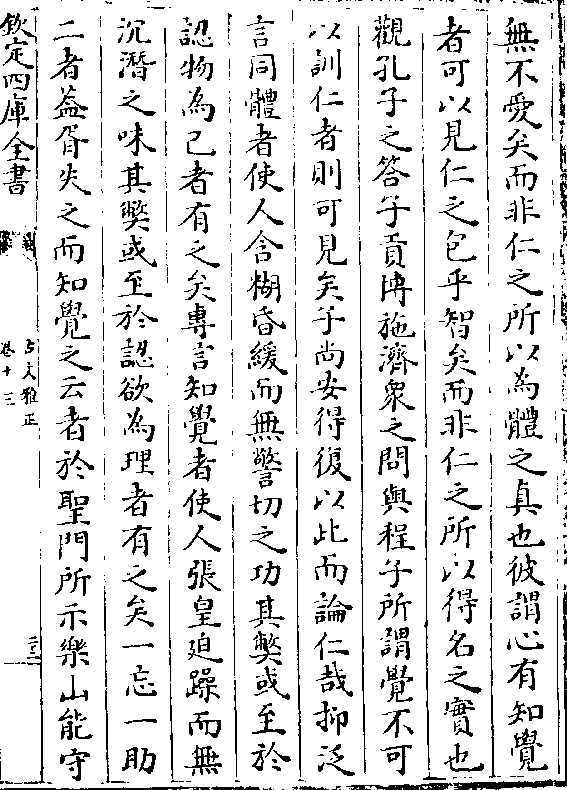 無不愛矣而非仁之所以為體之真也彼謂心有知覺
者可以見仁之包乎智矣而非仁之所以得名之實也
觀孔子之答子貢博施濟衆之問與程子所謂覺不可
以訓仁者則可見矣子尚安得復以此而論仁哉抑泛
言同體者使人含糊昏緩而無警切之功其弊或至於
認物為己者有之矣專言知覺者使人張皇迫躁而無
沉潛之味其弊或至於認欲為理者有之矣一忘一助
二者葢胥失之而知覺之云者於聖門所示樂山能守
欽定四庫全書
古文雅正
卷十三